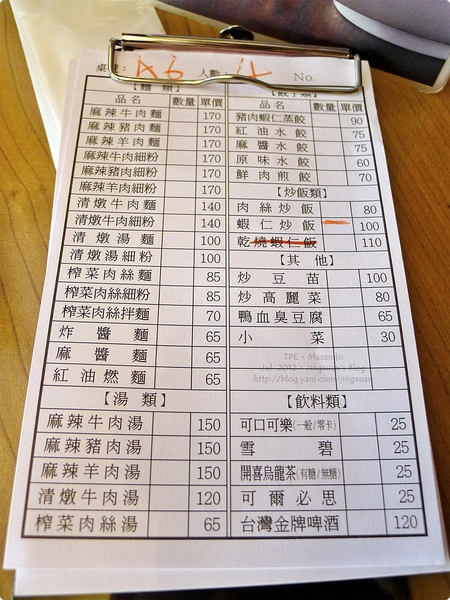 桌號： A6 人數： 1L No.
【麵類】
品名 數量 單價
麻辣牛肉麵 170
麻辣豬肉麵 170
麻辣羊肉麵 170
麻辣牛肉細粉 170
麻辣豬肉細粉 170
麻辣羊肉細粉 170
清燉牛肉麵 140
清燉牛肉細粉 140
清燉湯麵 100
清燉湯細粉 100
榨菜肉絲麵 85
榨菜肉絲細粉 85
榨菜肉絲拌麵 70
炸醬麵 65
麻醬麵 65
紅油燃麵 65
【湯類】
麻辣牛肉湯 150
麻辣豬肉湯 150
麻辣羊肉湯 150
清燉牛肉湯 120
榨菜肉絲湯 65
【餃子類】
品名 數量 單價
豬肉蝦仁蒸餃 90
紅油水餃 75
麻醬水餃 75
原味水餃 60
鮮肉煎餃 70
【炒飯類】
肉絲炒飯 80
蝦仁炒飯 100
乾燒蝦仁飯 110
【其他】
炒豆苗 100
炒高麗菜 80
鴨血臭豆腐 65
小菜 30
TPE‧Mazendo
Jul. 2012‧Jingsuan's Blog
http://blog.yam.com/jingsuan
【飲料類】
可口可樂(一般/零卡) 25
雪碧 25
開喜烏龍茶(有糖/無糖) 25
可爾必思 25
台灣金牌啤酒 120